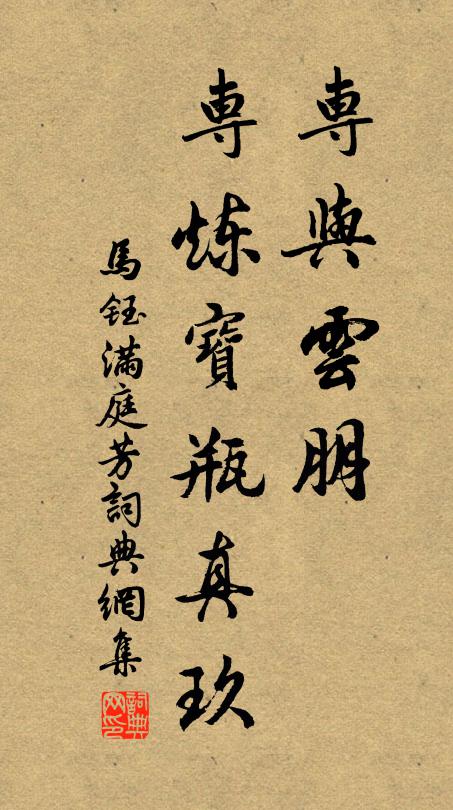 專與雲朋
專煉寶瓶真玖
馬鈺滿庭芳詞典網集
詞典网印